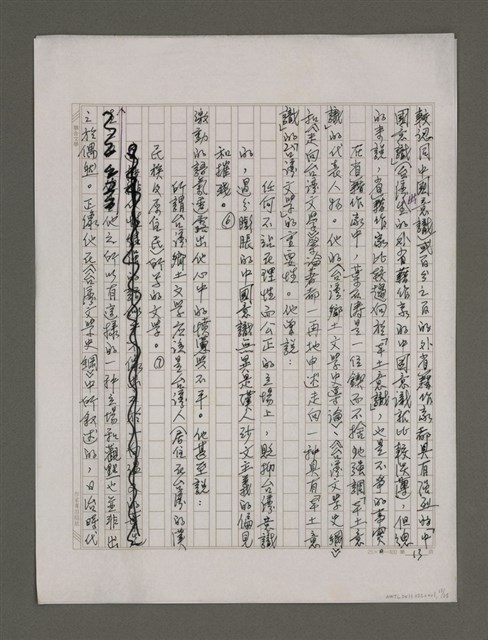 較認同中國意識，或百分之百的外省籍作家都具有強烈的「中
國意識」（台灣生的外省籍作家的中國意識就比較淡薄，但
的來說，省籍作家比較趨向於「本土意識」，也是不爭的事實
在省籍作家中，葉石濤是一位鍥而不捨地強調「本土意
識」的代表人物。他的《台灣鄉土文學史導論》《台灣文學史綱》
和《走向台灣文學》等論著都一再地申述走向一種具有「本土意
識」的「台灣文學」的重要性。他曾說：
任何不站在理性而公正的立場上，貶抑台灣意識
的，過分膨脹的中國意識無異是漢人沙文主義的偏見
和摧殘。⑥
激動的語氣透露出他心中的憤懣與不平。他甚至說：
所謂台灣鄉土文學應該是台灣人（居住在台灣的漢
民族及原住民）所寫的文學。⑦
他之所以有這樣的一種立場和觀點也並非出
之於偶然。正像他在《台灣文學史綱》中所敘述的，日治時代
13